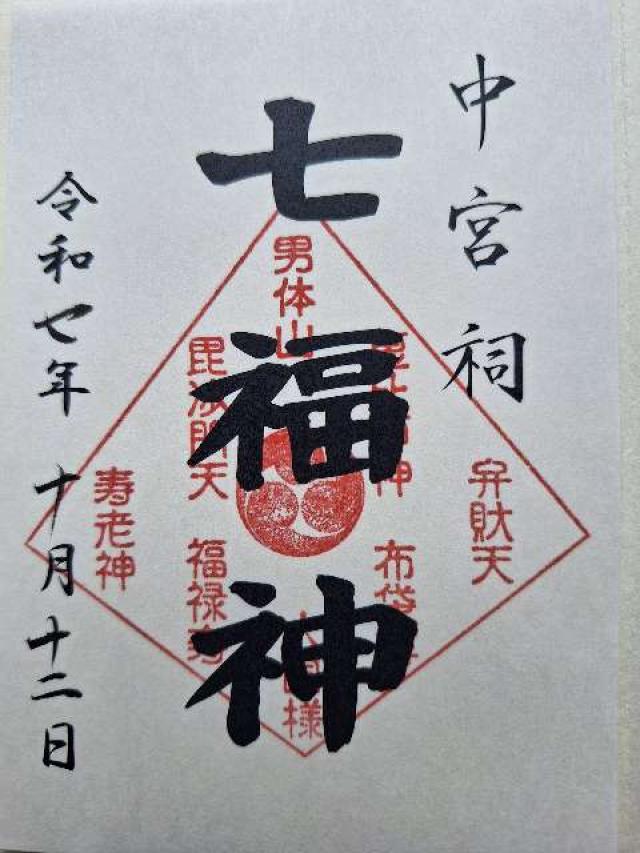 中宮祠
七福神
男体山
弁財天
毘沙門天
布袋
福禄寿
寿老神
様
令和七年 十月十二日